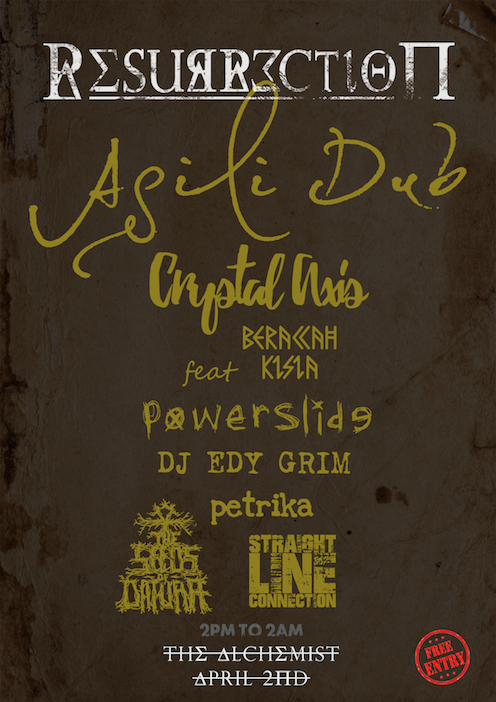 RESURRECTION
Agili Dub
Crystal Axis
BERACCAH
feat KISIA
Powerslide
DJ EDY GRIM
petrika
THE
SEEDS
OF
DATURA
STRAIGHT
LINE
CONNECTION
2PM TO 2AM
THE ALCHEMIST
APRIL 2ND
FREE
ENTRY